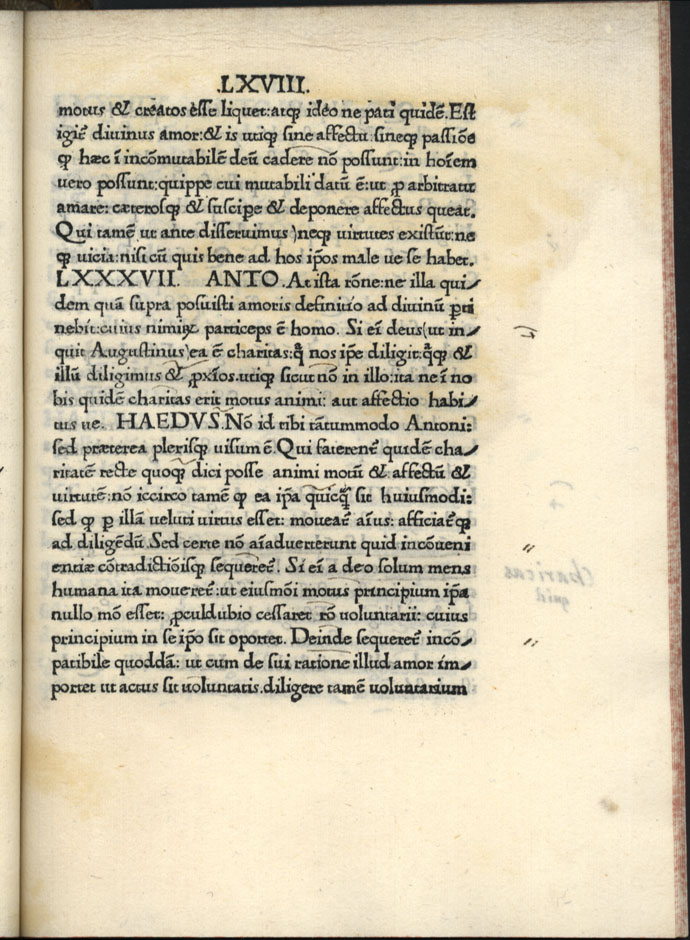 .LXVIII.
motus & creatos esse liquet:atq; ideo ne pati quidē.Est
igit̃ diuinus amor:& is utiq; sine affectu:sineq; passiōe
ꝙ hæc ī incōmutabilē deū cadere nō possunt:in hoīem
uero possunt:quippe cui mutabili datū ē:ut ꝓ arbitratu
amare: cæterosq; & suscipe & deponere affectus queat.
Qui tamē ut ante disseruimus )neq; uirtutes existūt:ne
q; uicia:nisi cū quis bene ad hos ip̄os male ue se habet.
LXXXVII. ANTO.At ista rōne:ne illa qui⸗
dem quā supra posuisti amoris definitio ad diuinū ꝑti
nebit:cuius nimiꝝ particeps ē homo. Si ei̅ deus(ut in⸗
quit Augustinus)ea ē charitas:q̄ nos ip̄e diligit:q̄q; &
illū diligimus & ꝓxīos.utiq; sicut nō in illo:ita ne ī no
bis quidē charitas erit motus animi: aut affectio habi⸗
tus ue. HAEDVS.Nō id tibi tātummodo Antoni:
sed præterea plerisq; uisum ē.Qui faterent̃ quidē cha⸗
ritatē recte quoq; dici posse animi motū & affectū &
uirtutē:nō iccirco tamē ꝙ ea ip̄a quicq̄ sit huiusmodi:
sed ꝙ ꝑ illā ueluti uirtus esset: moueat̃ aīus: afficiat̃q;
ad diligēdū.Sed certe nō aīaduerterunt quid incōueni
entiæ cōtradictiōisq; sequeret̃. Si ei̅ a deo solum mens
humana ita moueret̃:ut eiusmōi motus principium ip̄a
nullo mō esset: ꝓculdubio cessaret rō uoluntarii: cuius
principium in se ip̄o sit oportet. Deinde sequeret̃ incō⸗
patibile quoddā: ut cum de sui ratione illud amor im⸗
portet ut actus sit uoluntatis.diligere tamē uoluntarium